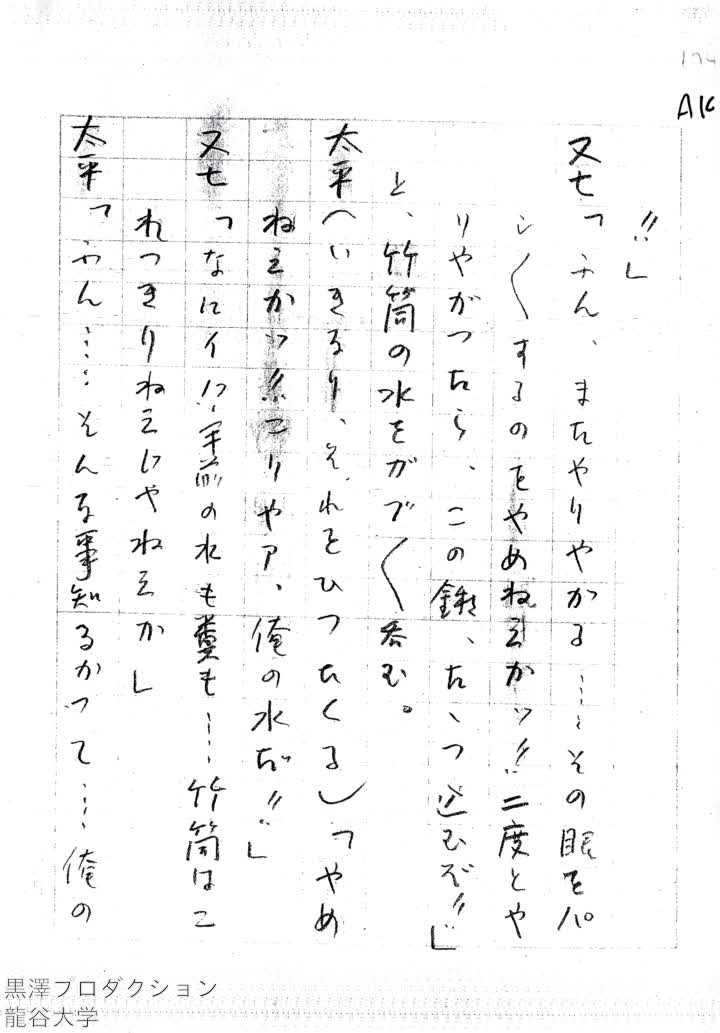 174
AK
!!」
又七「ふん、またやりやがる……その眼をパ
シ〱するのをやめねえかッ!! 二度とや
りやがつたら、この鍬、たゝつ込むぞ!!」
と、竹筒の水をガブ〱呑む。
太平(いきなり、それをひつたくる)「やめ
ねえかッ!! こりやア、俺の水だ!!」
又七「なにイ!? 手前の水も糞も……竹筒はこ
れつきりねえじやねえか」
太平「ふん……そんな事知るかつて……俺の
黒澤プロダクション
龍谷大学